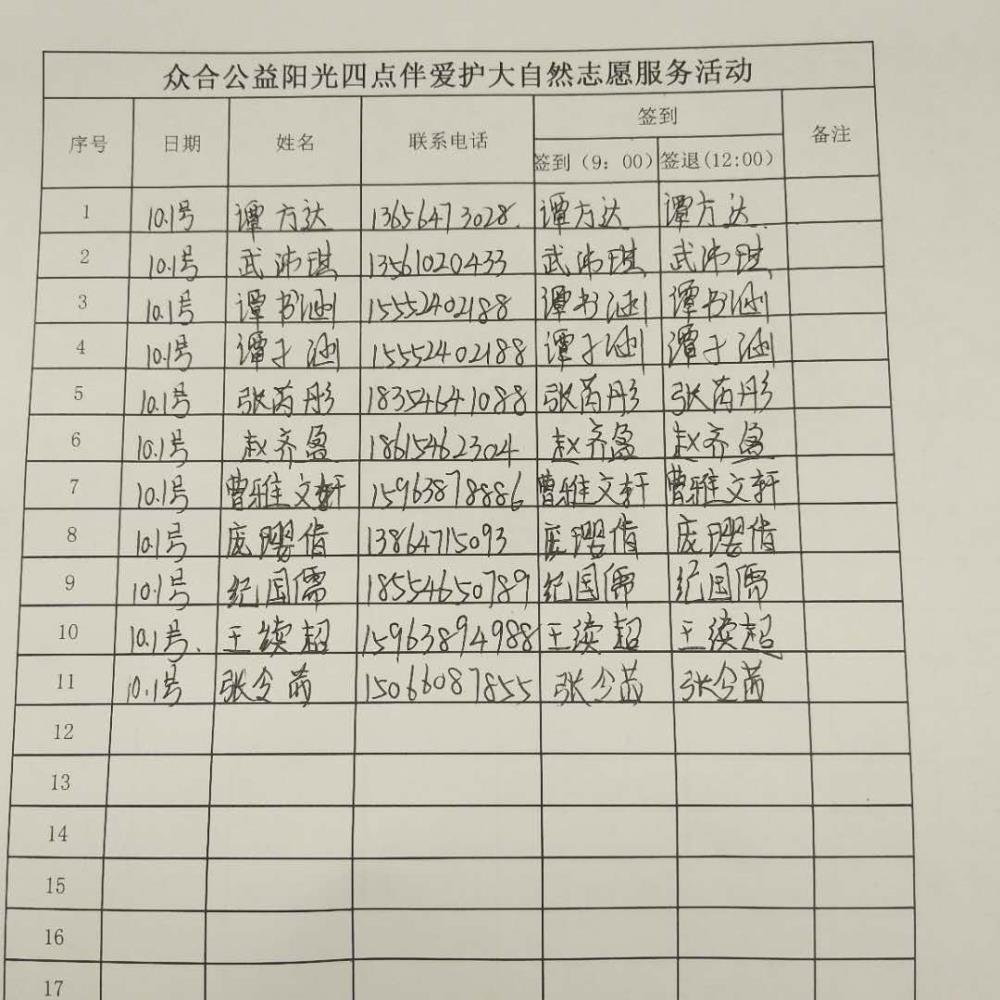 众合公益阳光四点伴爱护大自然志愿服务活动
序号 日期 姓名 联系电话 签到 备注
签到（9：00） 签退(12:00)
1 10.1号 谭方达 13656473028. 谭方达 谭方达
2 10.1号 武沛琪 13561020433 武沛琪 武沛琪
3 10.1号 谭书涵 15552402188 谭书涵 谭书涵
4 10.1号 谭子涵 15552402188 谭子涵 谭子涵
5 10.1号 张芮彤 18354641088 张芮彤 张芮彤
6 10.1号 赵齐盈 18615462304 赵齐盈 赵齐盈
7 10.1号 曹雅文轩 15963878886 曹雅文轩 曹雅文轩
8 10.1号 13864715093
9 10.1号 纪国儒 18554650789 纪国儒 纪国儒
10 10.1号. 王续超 15963894988 王续超 王续超
11 10.1号 张令茜 15066087855 张令茜 张令茜
12
13
14
15
16
17